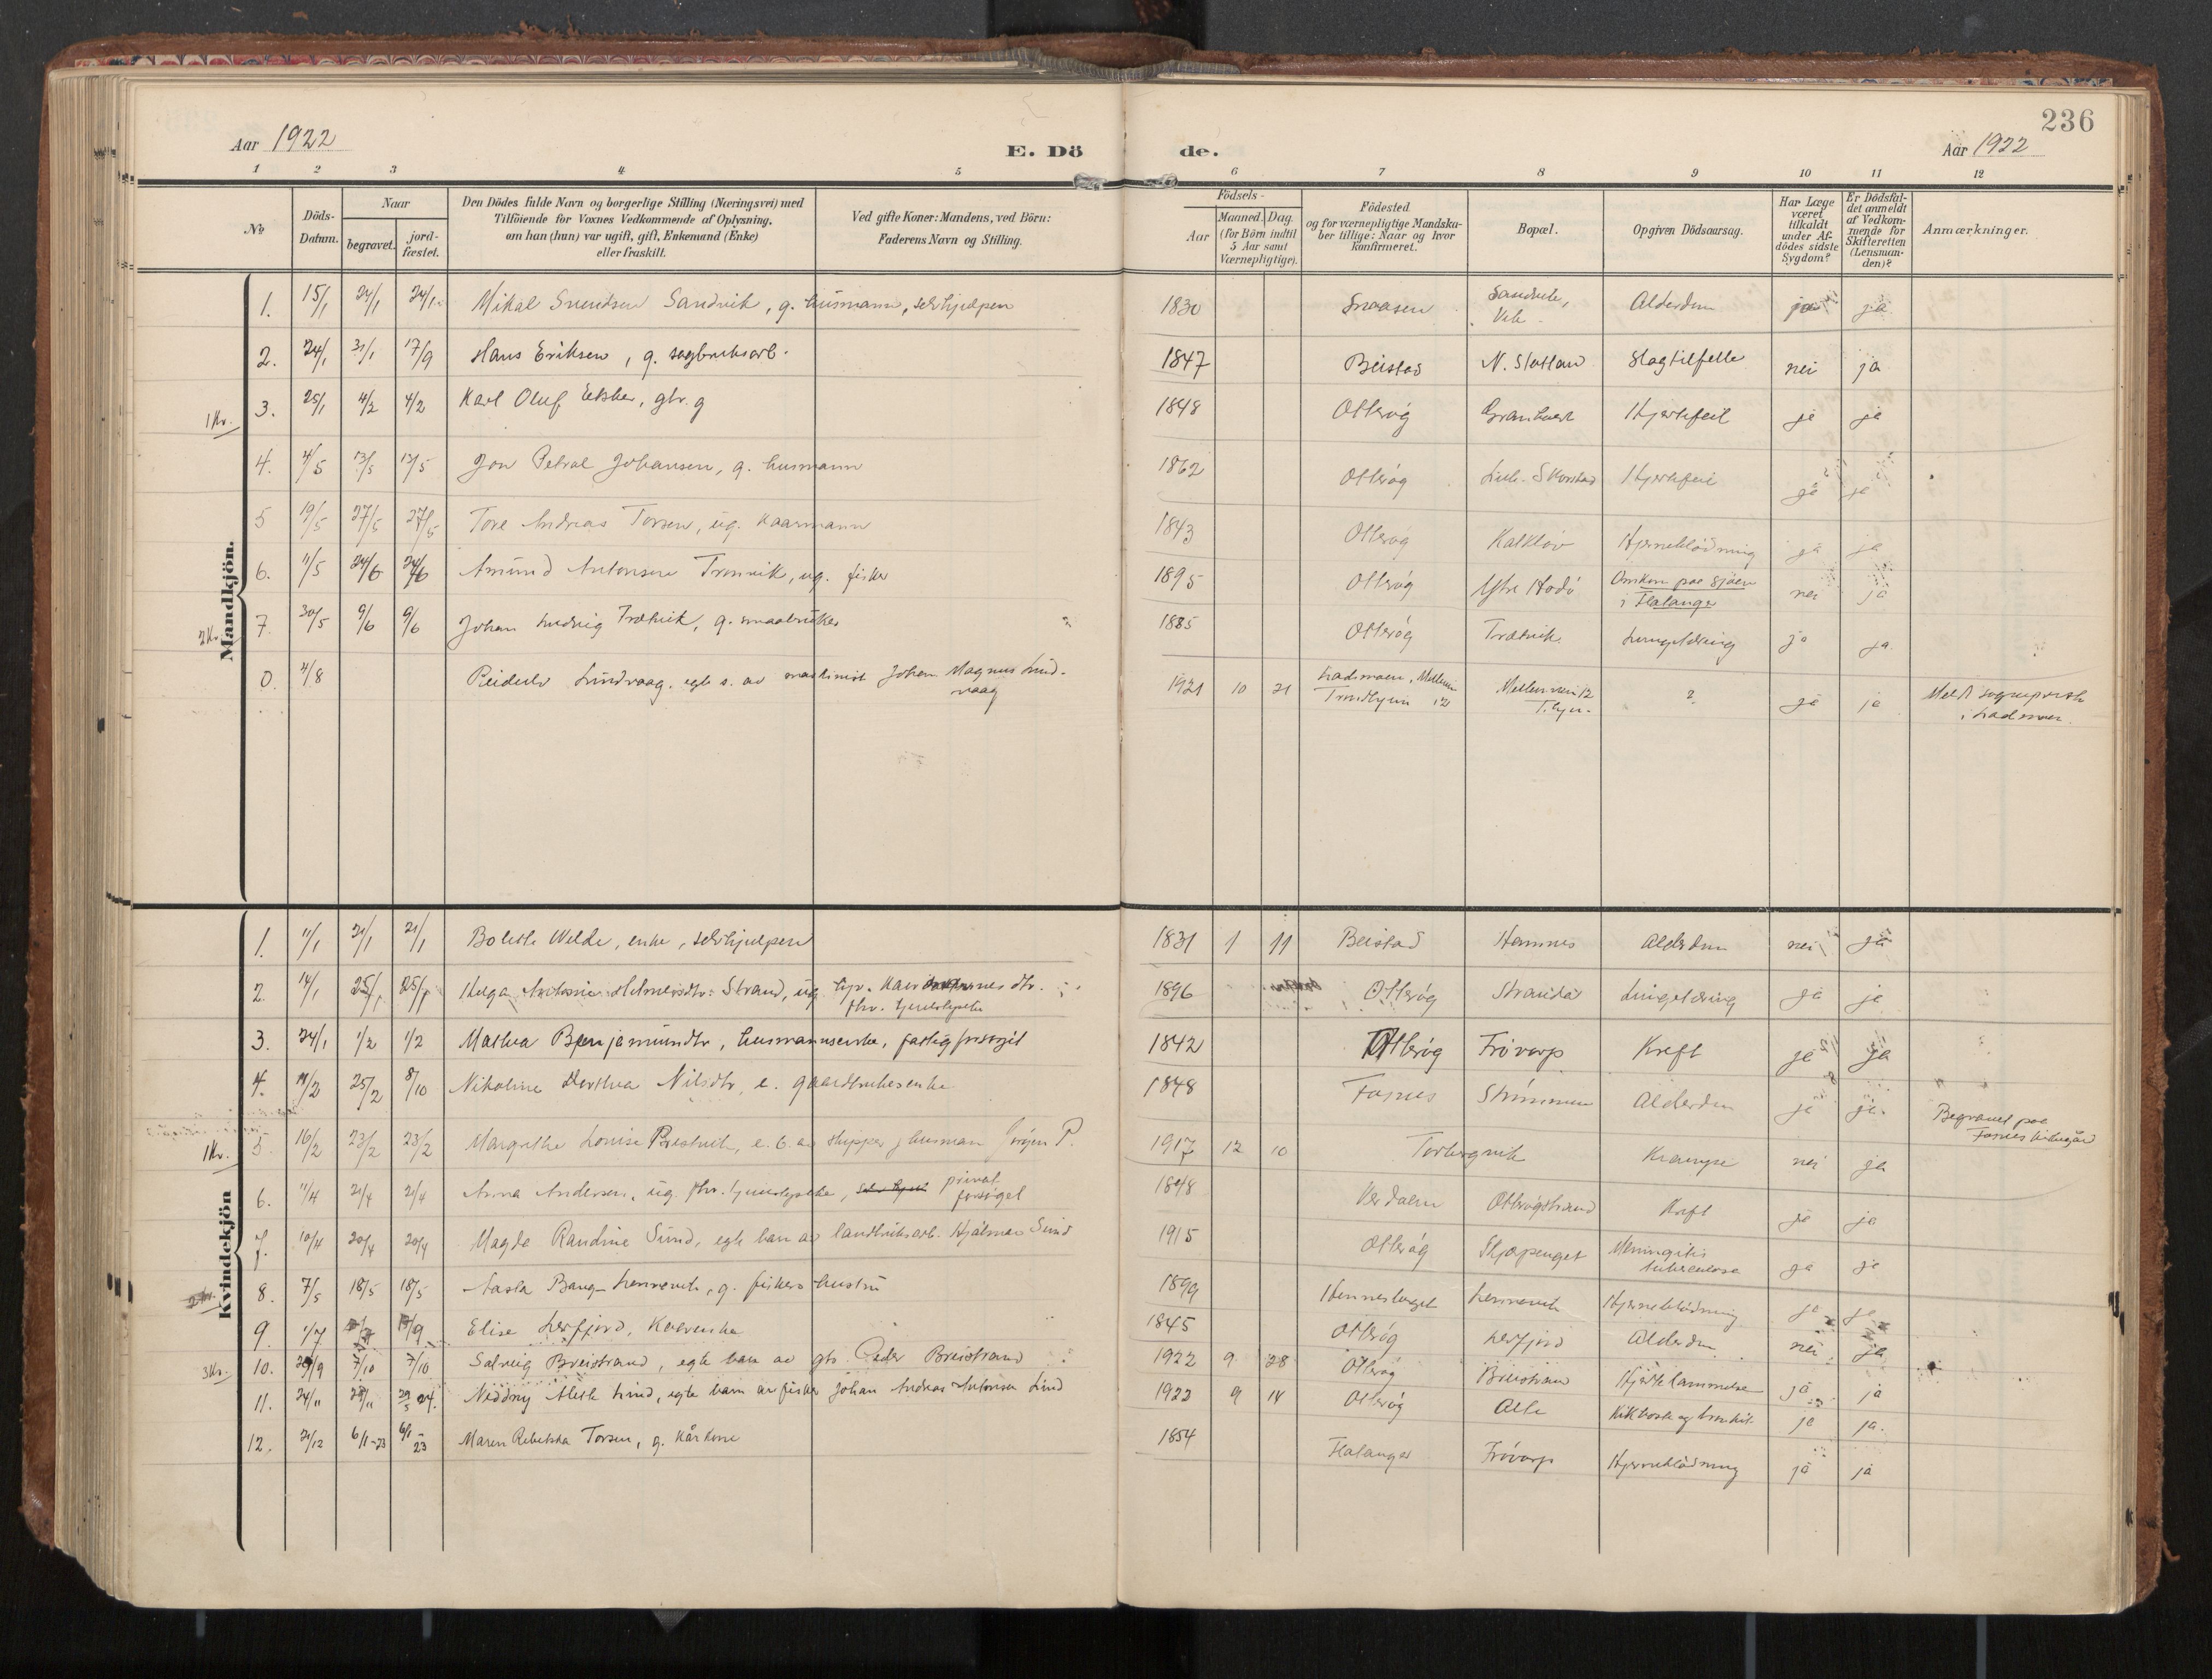 236
Aar 1922
E. Dö de.
Aar 1922
1 2 3 4 5 6 7 8 9 10 11 12
No
Döds-Datum.
Naar
begravet.
jord-fæstet.
Den Dödes fulde Navn og borgerlige Stilling (Næringsvei) med
Tilföiende for Voxnes Vedkommende af Oplysning,
om han (hun) var ugift, gift, Enkemand (Enke)
eller fraskilt.
Ved gifte Koner: Mandens, ved Börn:
Faderens Navn og Stilling.
Födsels-
Aar
Maaned. Dag.
(for Börn indtil
5 Aar samt
Værnepligtige).
Födested
og for værnepligtige Mandska-
ber tillige: Naar og hvor
konfirmeret.
Bopæl.
Opgiven Dödsaarsag.
Har Læge
været
tilkaldt
under Af-
dödes sidste
Sygdom?
Er Dödsfal-
det anmeldt
af Vedkom-
mende for
Skifteretten
(Lensman-
den)?
Anmærkninger.
Mandkjön.
1. 15/1 24/1 24/1 Mikal Svendsen Sandvik, g. husmann, selvhjulpen 1830 Snaasen Sandvik, Alderdom ja ja
2. 24/1 31/1 17/9 Hans Eriksen, g. sagbruksarb. 1847 Beistad N. Statland Slagtilfelle nei ja
1 Kr. 3. 25/1 4/2 4/2 Karl Oluf, gbr. g 1848 Otterøy Hjertefeil ja ja
4. 4/5 13/5 13/5 Jon Petral Johansen, g. husmann 1862 Otterøy Hjertefeil ja ja
5 19/5 27/5 27/5 Tore Andreas Torsen, ug. kaarmann 1843 Otterøy Kalkløv Hjerneblødning ja ja
6. 11/5 24/6 24/6 Amund Antonsen Tranvik, ug. fisker 1895 Otterøy Ytre Hodø Omkom paa sjøen
i Flatanger nei ja
2 Kr. 7. 30/5 9/6 9/6 Johan Ludvig Trætvik, g. smaabruker 1885 Otterøy Trætvik Lungetæring ja ja.
0. 4/8 Reidulv Lindvaag, egte s. av maskinist Johan Magnus Lind-
vaag 1921 10 21 Lademoen, Mellemv.
Trondhjem 12 Mellemveien 12
T.hjem. ? ja ja Meldt sogneprest
i Lademoen.
Kvindekjön
1. 11/1 21/1 21/1 Bolette Welde, enke, selvhjulpen 1831 1 11 Beistad Hamnes Alderdom nei ja
2. 14/1 25/1 25/1 Helga Antonie Helmersdtr. Strand, ug. dtr.
fhv. tjenestepike 1896 Otterøy Stranda Lungetæring ja ja
3. 24/1 1/2 1/2 Mathea Benjaminsdtr, husmannsenke, fattigforsørget 1842 Otterøy Frøvarp Kreft ja ja
4. 25/2 8/10 Nikoline Dorthea Nilsdtr, e. gaardbrukerenke 1848 Fosnes Strømmen Alderdom ja ja. Begravet paa
Fosnes kirkegård
1 Kr. 5. 16/2 23/2 23/2 Margrethe Louise Prestvik, e. b. av skipper, husmann Jørgen P. 1917 12 10 Torbergvik Krampe nei ja
6. 11/4 21/4 21/4 Anna Andersen, ug. fhv. tjenestepike, privat
forsørget 1848 Verdalen Otterøystrand Kreft ja ja
7. 10/4 20/4 20/4 Magda Randine Sund, egte barn av landbruksarb. Hjalmar Sund 1915 Otterøy Skjøpenget Meningitis
tuberculosa ja ja
2 Kr. 8. 7/5 18/5 18/5 Aasta Bang-Lennevik, g. fiskers hustru 1899 Hennesberget Lennevik Hjerneblødning ja ja
9. 1/7 Elise Lerfjord, Kaarenke 1845 Otterøy Lerfjord Alderdom nei ja
3 Kr. 10. 29/9 7/10 7/10 Solveig Breistrand, egte barn av gbr. Peder Breistrand 1922 9 28 Otterøy Breistrand Hjertelammelse ja ja
11. 24/11 29/11 29/5 24. Neddny Alette Lund, egte barn av fisker Johan Andreas Antonsen Lund 1922 9 14 Otterøy Alte Kikhoste og bronkit. ja ja.
12. 21/12 6/1-23 6/1-23 Maren Rebekka Torsen, g. kårkone 1854 Flatanger Frøvarp Hjerneblødning ja ja